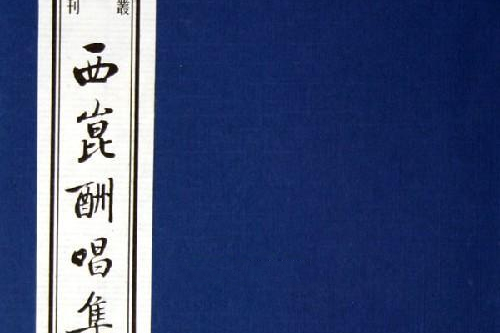 叢刊
西崑酬唱集